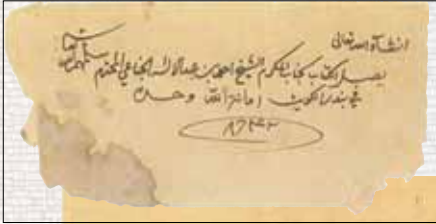 انشاء الله تعالى
يصل الكتاب بجناب المكرم الشيخ احمد بن عبد الله المحترم سلمه الله
في بندر الكويت امانة الله وحده
٨٦٤٢